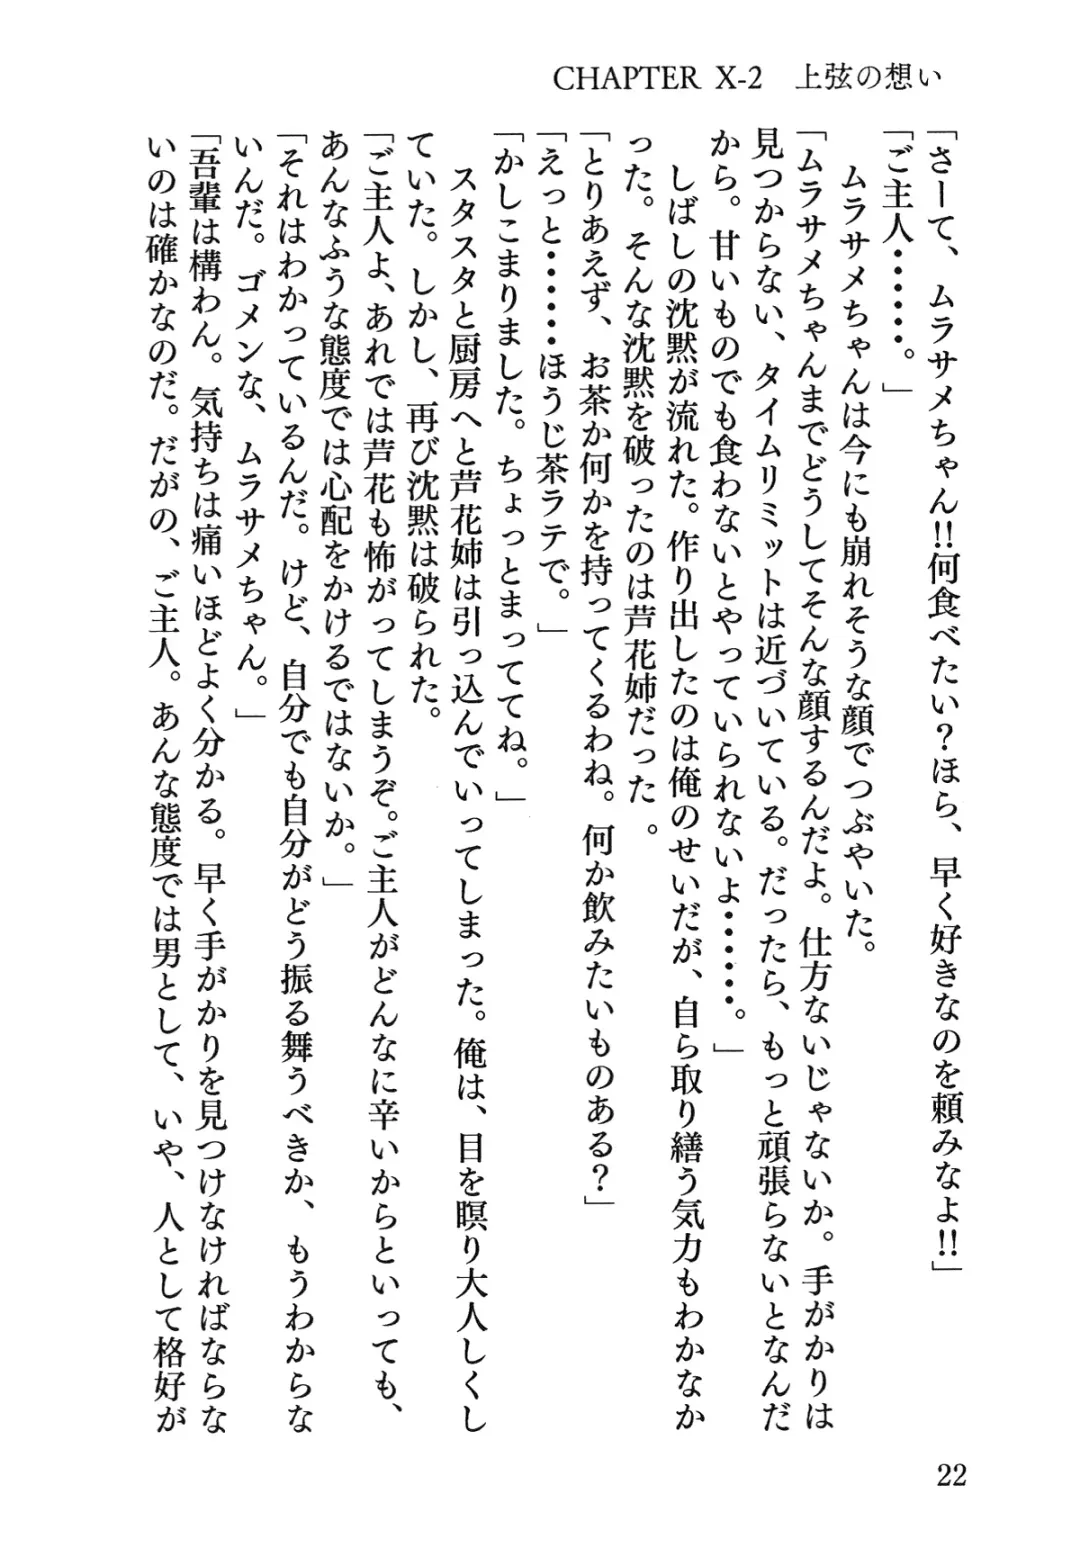 CHAPTER X-2 上弦の想い
「さーて、ムラサメちゃん!!何食べたい？ほら、早く好きなのを頼みなよ!!」
「ご主人・・・・・・。」
　ムラサメちゃんは今にも崩れそうな顔でつぶやいた。
「ムラサメちゃんまでどうしてそんな顔するんだよ。仕方ないじゃないか。手がかりは
見つからない、タイムリミットは近づいている。だったら、もっと頑張らないとなんだ
から。甘いものでも食わないとやっていられないよ・・・・・・。」
　しばしの沈黙が流れた。作り出したのは俺のせいだが、自ら取り繕う気力もわかなか
った。そんな沈黙を破ったのは芦花姉だった 。
「とりあえず、お茶か何かを持ってくるわね。何か飲みたいものある？」
「えっと・・・・・・ほうじ茶ラテで。」
「かしこまりました。ちょっとまっててね。」
　スタスタと厨房へと芦花姉は引っ込んでいってしまった。俺は、目を瞑り大人しくし
ていた。しかし、再び沈黙は破られた。
「ご主人よ、あれでは芦花も怖がってしまうぞ。ご主人がどんなに辛いからといっても、
あんなふうな態度では心配をかけるではないか。」
「それはわかっているんだ。けど、自分でも自分がどう振る舞うべきか、もうわからな
いんだ。ゴメンな、ムラサメちゃん。」
「吾輩は構わん。気持ちは痛いほどよく分かる。早く手がかりを見つけなければならな
いのは確かなのだ。だがの、ご主人。あんな態度では男として、いや、人として格好が
22